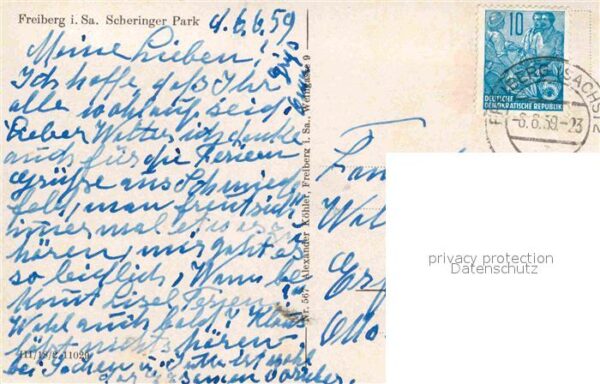 Freiberg i. Sa. Scheringer Park
d. 6.6.59
Meine Lieben!
Ich hoffe, daß Ihr
alle wohlauf seid.
Lieber Walter ich danke
auch für die Ferien
Grüße aus Schmied
feld, man freut sich
immer mal etwas zu
hören, mir geht es
so leidlich, Wann be
kommt Lisel Ferien
Wohl auch bald? Klaus
läßt nichts hören
bei Jochen u. Jutta ist wohl
gewesen vorüber.
III/18/2 11029
Nr. 567 Alexander Köhler, Freiberg i. Sa., Weingasse 9
10
DEUTSCHE
DEMOKRATISCHE REPUBLIK
FREIBERG (SACHS) 2
-6.6.59.-23
Fam
Wal
Erf
Otto
privacy protection
Datenschutz